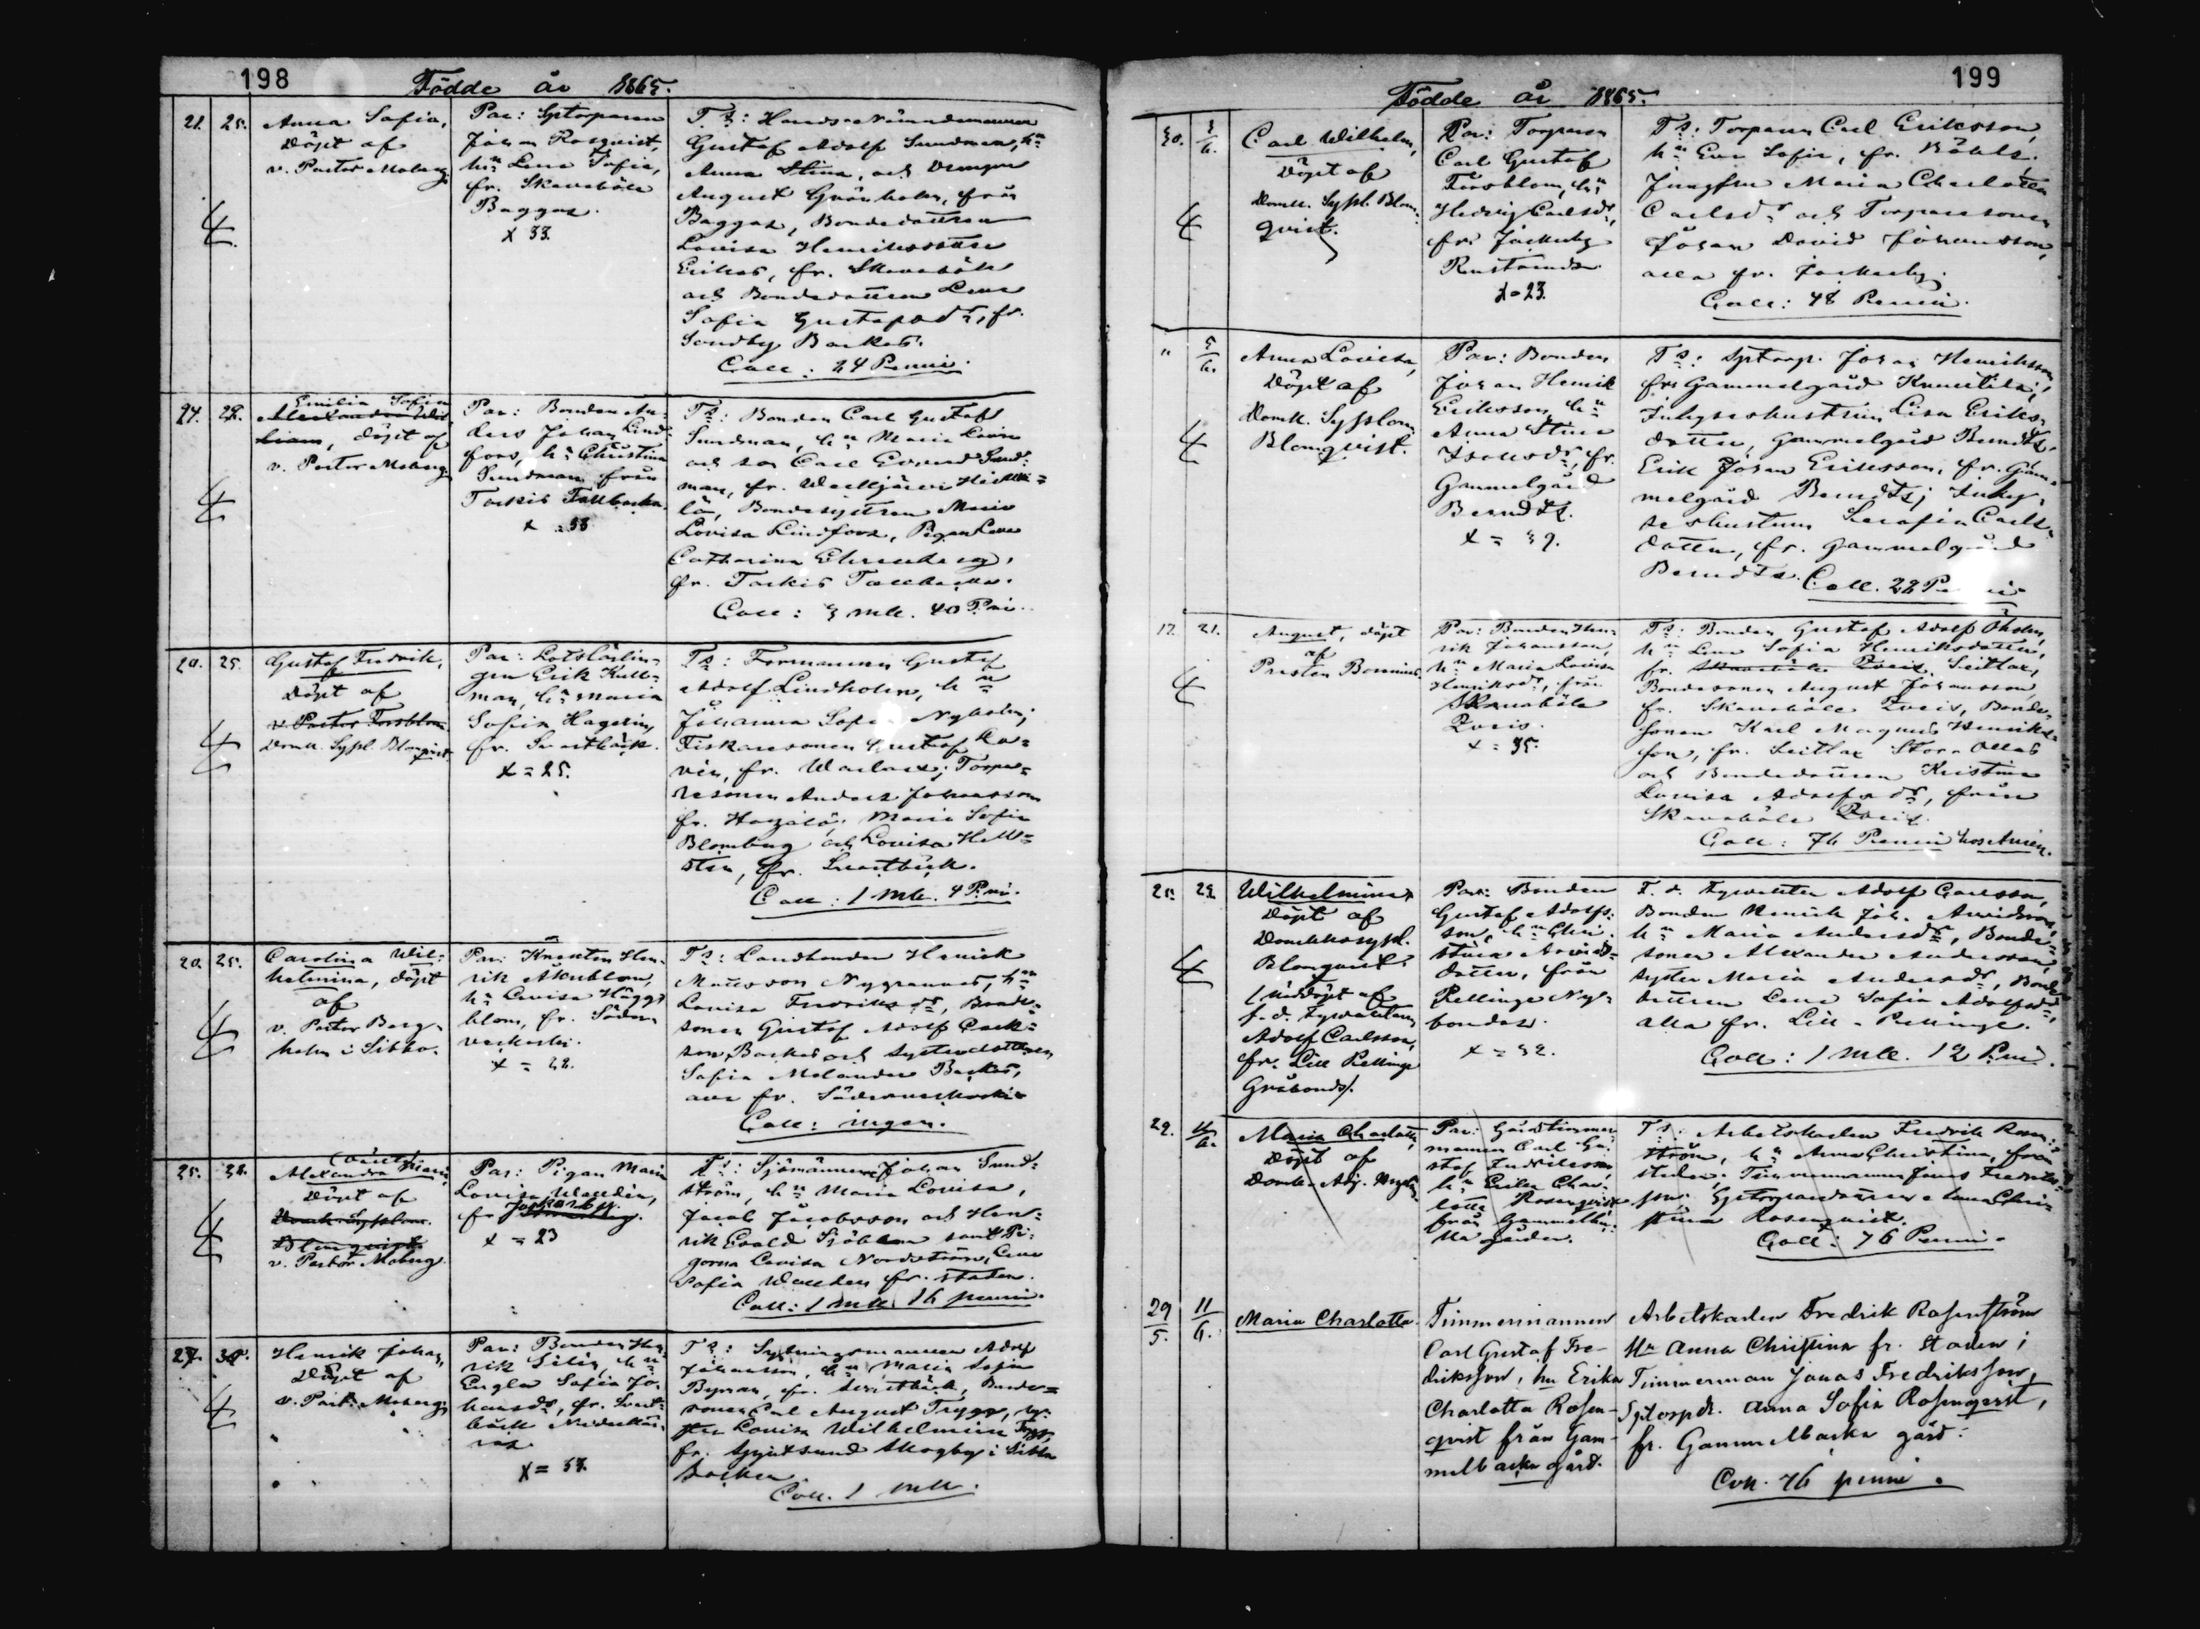 198
Födde år 1865.
21. 25. Anna Sofia,
Döpt af
v. Pastor Moberg.
Par: Sptorparen
Johan Rosqvist,
hn Lena Sofia,
fr. Skavaböle
Baggas.
x 33.
Ts: Herrads Nämndemannen
Gustaf Adolf Sundman, hn
Anna Stina, och Drengen
August Grönholm, från
Baggas, Bondedottren
Lovisa Henriksdotter
Erikas, fr. Skavaböle
och Bondedottren Lena
Sofia Gustafsdr, fr.
Sondby Backas.
Coll: 24 Penni.
24. 28. Emilia Sofia
döpt af
v. Pastor Moberg.
Par: Bonden An-
ders Johan Lind-
fors, hn Christina
Sundman från
Torkis Tallbacka.
x = 38
Ts: Bonden Carl Gustaf
Sundman, hn Maria Lovisa
och son Carl Edvard Sund-
man, fr.
Bondehustrun Maria
Lovisa Lindfors, Pigan Lena
Catharina Ehrenberg,
fr. Torkis Tallbacka.
Coll: 3 mk. 40 Pni.
20. 25. Gustaf Fredrik,
Döpt af
v. Pastor Forsblom
Domk. Syssl. Blomqvist.
Par: Lotslärlin-
gen Erik Kull-
man, hn Maria
Sofia Hagelin,
fr. Svartbäck.
x = 25.
Ts: Formannen Gustaf
Adolf Lindholm, hn
Johanna Sofia Nyholm;
Fiskaresonen Gustaf Ro-
vin, fr. Warlax; Torpa-
resonen Anders Johansson
fr. Maria Sofia
Blomberg och Lovisa Hell-
sten, fr. Svartbäck.
Coll: 1 mk. 4 Pni.
20. 25. Carolina Wil-
helmina, döpt
af
v. Pastor Berg-
helm i Sibbo.
Par: Knekten Hen-
rik Åkerblom,
hn Lovisa Hägg-
blom, fr. Söder-
veckoski.
x = 22.
Ts: Landbonden Henrick
Mattsson Nygrannas, hn
Lovisa Fredriksdr, Bonde-
sonen Gustaf Adolf Carls-
son, Backas och
Sofia Molander Backas,
alla fr. Söderveckoski
Coll: ingen.
25. Alexandra
Döpt af
Domk. Sysslom.
Blomqvist
v. Pastor Moberg.
Par: Pigan Maria
Lovisa Wallden,
fr Jackarby.
x = 23
Ts: Sjömannen Johan Sund-
ström, hn Maria Lovisa,
Jacob Jacobsson och Hen-
rik Evald Sjöblom samt Pi-
gorna Lovisa Nordström, Lena
Sofia Wallden fr. staden.
Coll: 1 mk 16 penni.
27. 30. Henrik Johan,
Döpt af
v. Past. Moberg.
Par: Bonden Hen-
rik Silén, hn
Engla Sofia Jo-
hansdr, fr. Svart-
bäck
x = 37.
Ts: Sytningsmannen Adolf
Johansson, hn Maria Sofia
Byman, fr. Svartbäck, Bonde-
sonen Carl August Trygg, sys-
ter Lovisa Wilhelmina Trygg,
fr. Spjutsund Skogby i Sibbo
Socken
Coll. 1 mk.
199
Födde år 1865.
30. 3/6. Carl Wilhelm,
Döpt af
Domk. Syssl. Blom-
qvist.
Par: Torparen
Carl Gustaf
Forsblom, hn
Hedvig Carlsdr,
fr. Jackarby
x = 23.
Ts: Torparen Carl Eriksson,
hn Eva Sofia, fr. Böhls.
Jungfru Maria Charlotta
Carlsdr och Torparesonen
Johan David Johansson,
alla fr. Jackarby.
Coll: 48 Penni.
" 5/6. Anna Lovisa,
Döpt af
Domk. Sysslom.
Blomqvist.
Par: Bonden
Johan Henrik
Eriksson, hn
Anna Stina
Isaksdr, fr.
Gammelgård
Berndts.
x = 39.
Ts: Sptorp. Johan Henriksson,
fr. Gammelgård Knuutila;
Inhyseshustrun Lisa Eriks-
dotter, Gammelgård Berndts,
Erik Johan Eriksson, fr. Gam-
melgård Berndts; Inhy-
seshustrun Serafia Carls-
dotter, fr. Gammelgård
Berndts. Coll. 22 Penni
17. 21. August, döpt
af
Presten Bonnius.
Par: Bonden Hen-
rik Johansson,
hn Maria Lovisa
Henriksdr, från
Skavaböle
Zweis.
x = 35.
Ts: Bonden Gustaf Adolf Öholm,
hn Lena Sofia Henriksdotter,
fr. Skavaböle Zweis, Seitlax,
Bondesonen August Johansson,
fr. Skavaböle Zweis, Bonde-
sonen Karl Magnus Henriks-
son, fr. Seitlax Stor-Ollas
och Bondedottren Kristina
Lovisa Adolfsdr, från
Skavaböle Zweis.
Coll: 76 Penni
25. 29. Wilhelmina
Döpt af
Domkkssyssl.
Blomqvist.
/ Nöddöpt af
f. d. Tygvaktaren
Adolf Carlsson,
fr. Lill Pellinge
Gråbonds/.
Par: Bonden
Gustaf Adolfs-
son, hn Chri-
stina Arvids-
dotter, från
Pellinge Nys-
bondas.
x = 32.
F. d. Tygvakten Adolf Carlsson,
Bonden Henrik Joh. Arvidsson,
hn Maria Andersdr, Bonde-
sonen Alexander Andersson,
syster Maria Andersdr, Bonde-
dottren Lena Sofia Adolfsdr,
alla fr. Lill-Pellinge.
Coll: 1 mk. 12 Pni.
29. 11/6. Maria Charlotta,
Döpt af
Domk. Adj.
Par: Gårdstimmer-
mannen Carl Gu-
staf Fredriksson,
hn Erika Char-
lotta Rosenqvist
från Gammelba-
cka gården.
Ts: Arbetskarlen Fredrik Rosen-
ström, hn Anna Christina, från
staden. Timmermannen Jonas Fredriks-
son; Sptorparedottren Anna Chri-
stina Rosenqvist.
Coll: 76 Penni.
29/5. 11/6. Maria Charlotta.
Timmermannen
Carl Gustaf Fre-
driksson, hn Erika
Charlotta Rosen-
qvist från Gam-
melbacka gård.
Arbetskarlen Fredrik Rosenström
Hn Anna Christina fr. Staden;
Timmerman Jonas Fredriksson,
Sptorpdr. Anna Sofia Rosenqvist,
fr. Gammelbacka gård.
Coll. 76 penni.